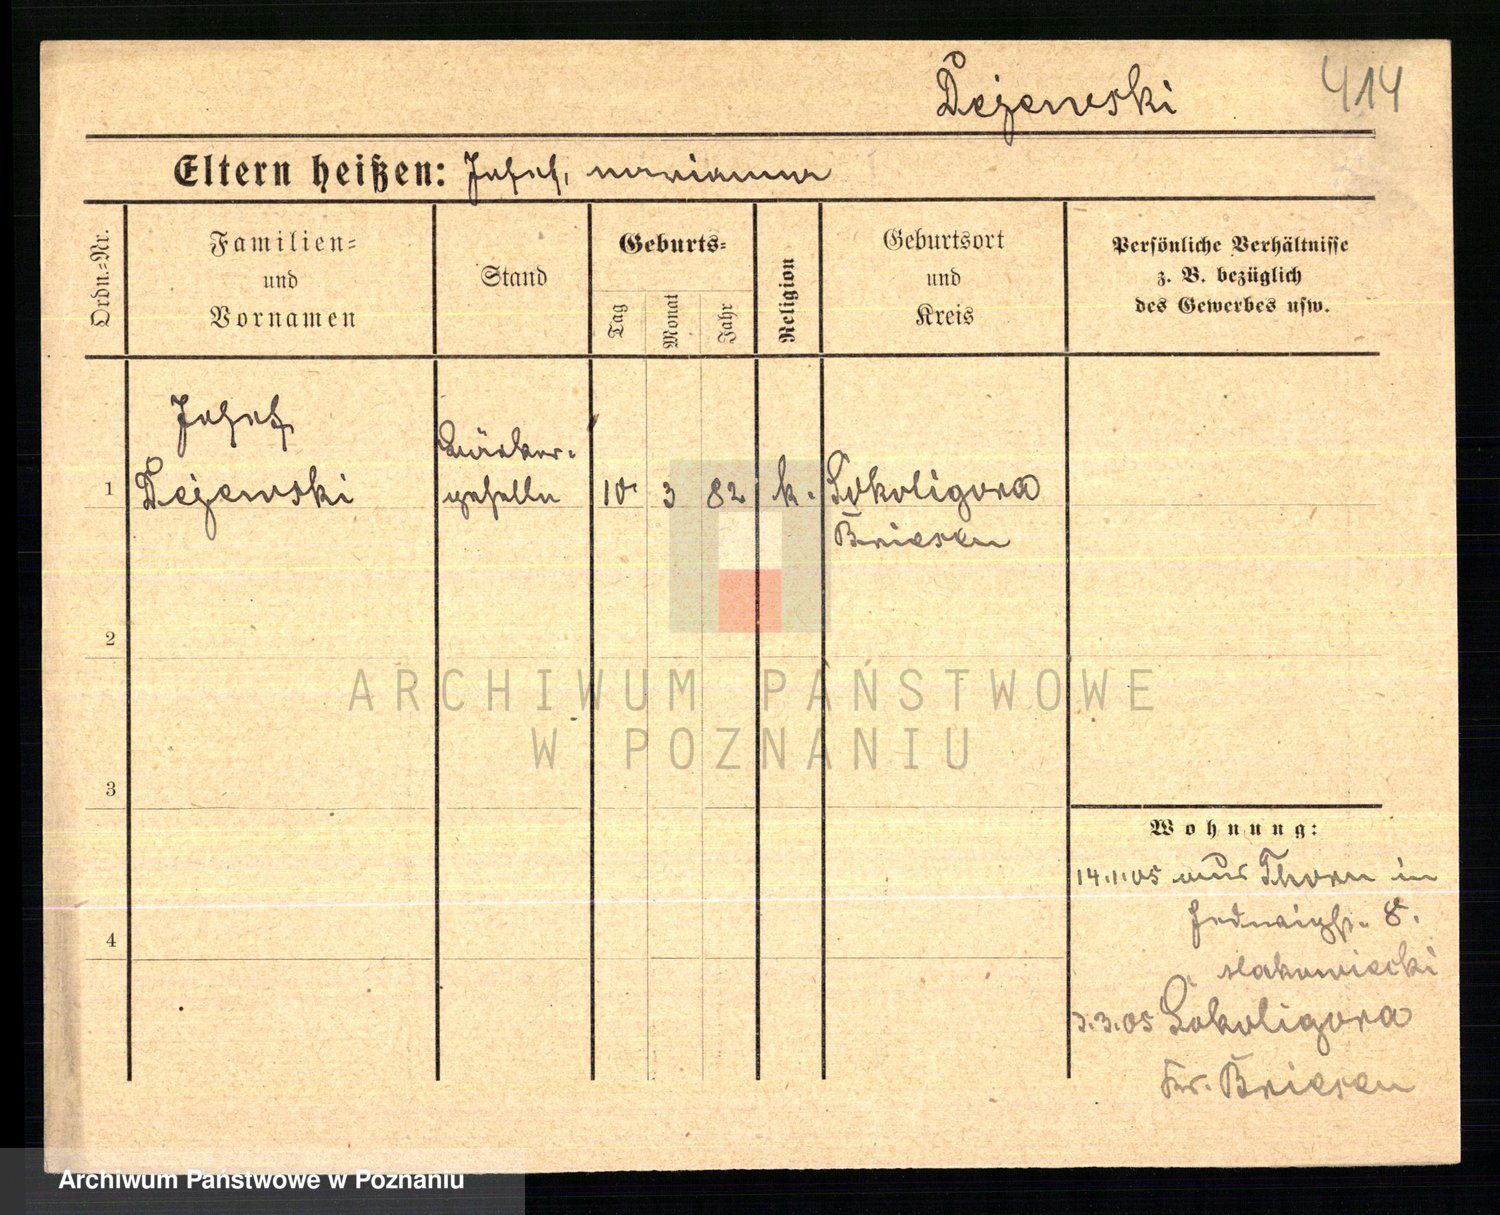 Dejewski
414
Eltern heißen: Josef, Marianna
Ordn.=Nr.
Familien=
und
Vornamen
Stand
Geburts=
Tag
Monat
Jahr
Religion
Geburtsort
und
Kreis
Persönliche Verhältnisse
z. B. bezüglich
des Gewerbes usw.
Josef
1 Dejewski
geselle
10. 3 82 k. Sokoligora
Briesen
2
3
4
Wohnung:
14.1.05 aus Thorn in
Hedwigst. 8.
3.3.05 Sokoligora
Kr. Briesen
ARCHIWUM PAŃSTWOWE
W POZNANIU
Archiwum Państwowe w Poznaniu